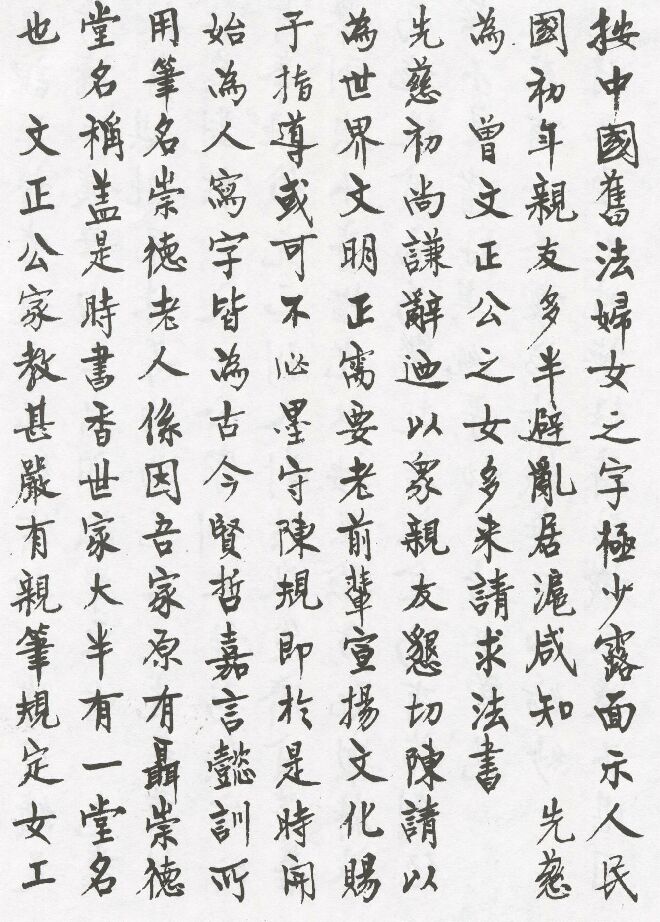 按中國舊法婦女之字極少露面示人民
國初年親友多半避亂居滬咸知 先慈
為 曾文正公之女多来請求法書
先慈初尚謙辭迺以衆親友懇切陳請以
為世界文明正需要老前輩宣揚文化賜
予指導或可不必墨守陳規即於是時開
始為人寫字皆為古今賢哲嘉言懿訓所
用筆名崇德老人係因吾家原有聶崇德
堂名稱盖是時書香世家大半有一堂名
也 文正公家教甚嚴有親筆規定女工